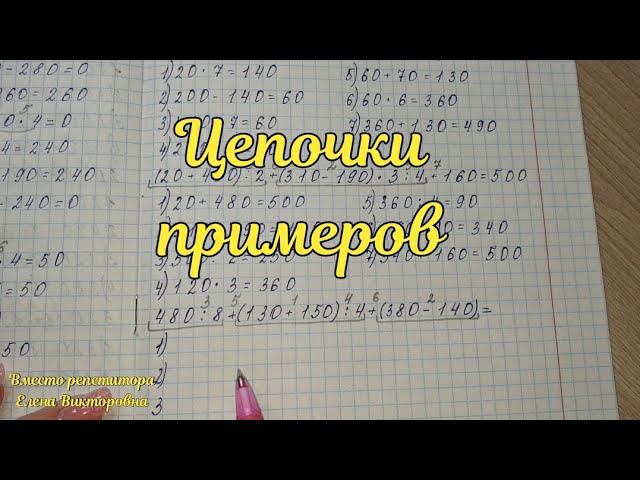 - 280 = 0
260 = 260
0 · 5 4 = 0
4 = 240
190 = 240
- 240 = 0
· 4 = 50
= 50
50
1) 20 · 7 = 140
2) 200 - 140 = 60
3) 7 = 60
4) 2
5) 60 + 70 = 130
6) 60 · 6 = 360
7) 360 + 130 = 490
Цепочки
примеров
(20 + 480) : 2 + (310 - 190) · 3 : 4 + 160 = 500
1) 20 + 480 = 500
= 250
4) 120 · 3 = 360
5) 360 : 4 = 90
= 340
160 = 500
480 : 8 + (130 + 150) : 4 + (380 - 140) =
1)
2)
3
Вместо репетитора
Елена Викторовна